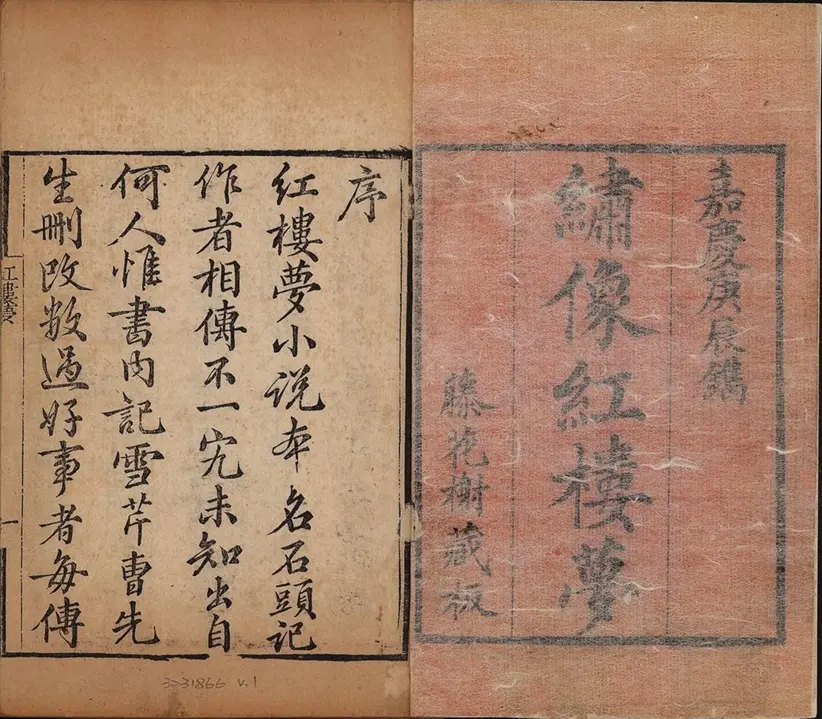 嘉慶庚辰鐫
繡像紅樓夢
藤花榭藏板
序
红樓夢小说本名石頭記
作者相傳不一究未知出自
何人惟書内記雪芹曹先
生刪改数過好事者每傳
紅樓夢
一
3331866 v.1